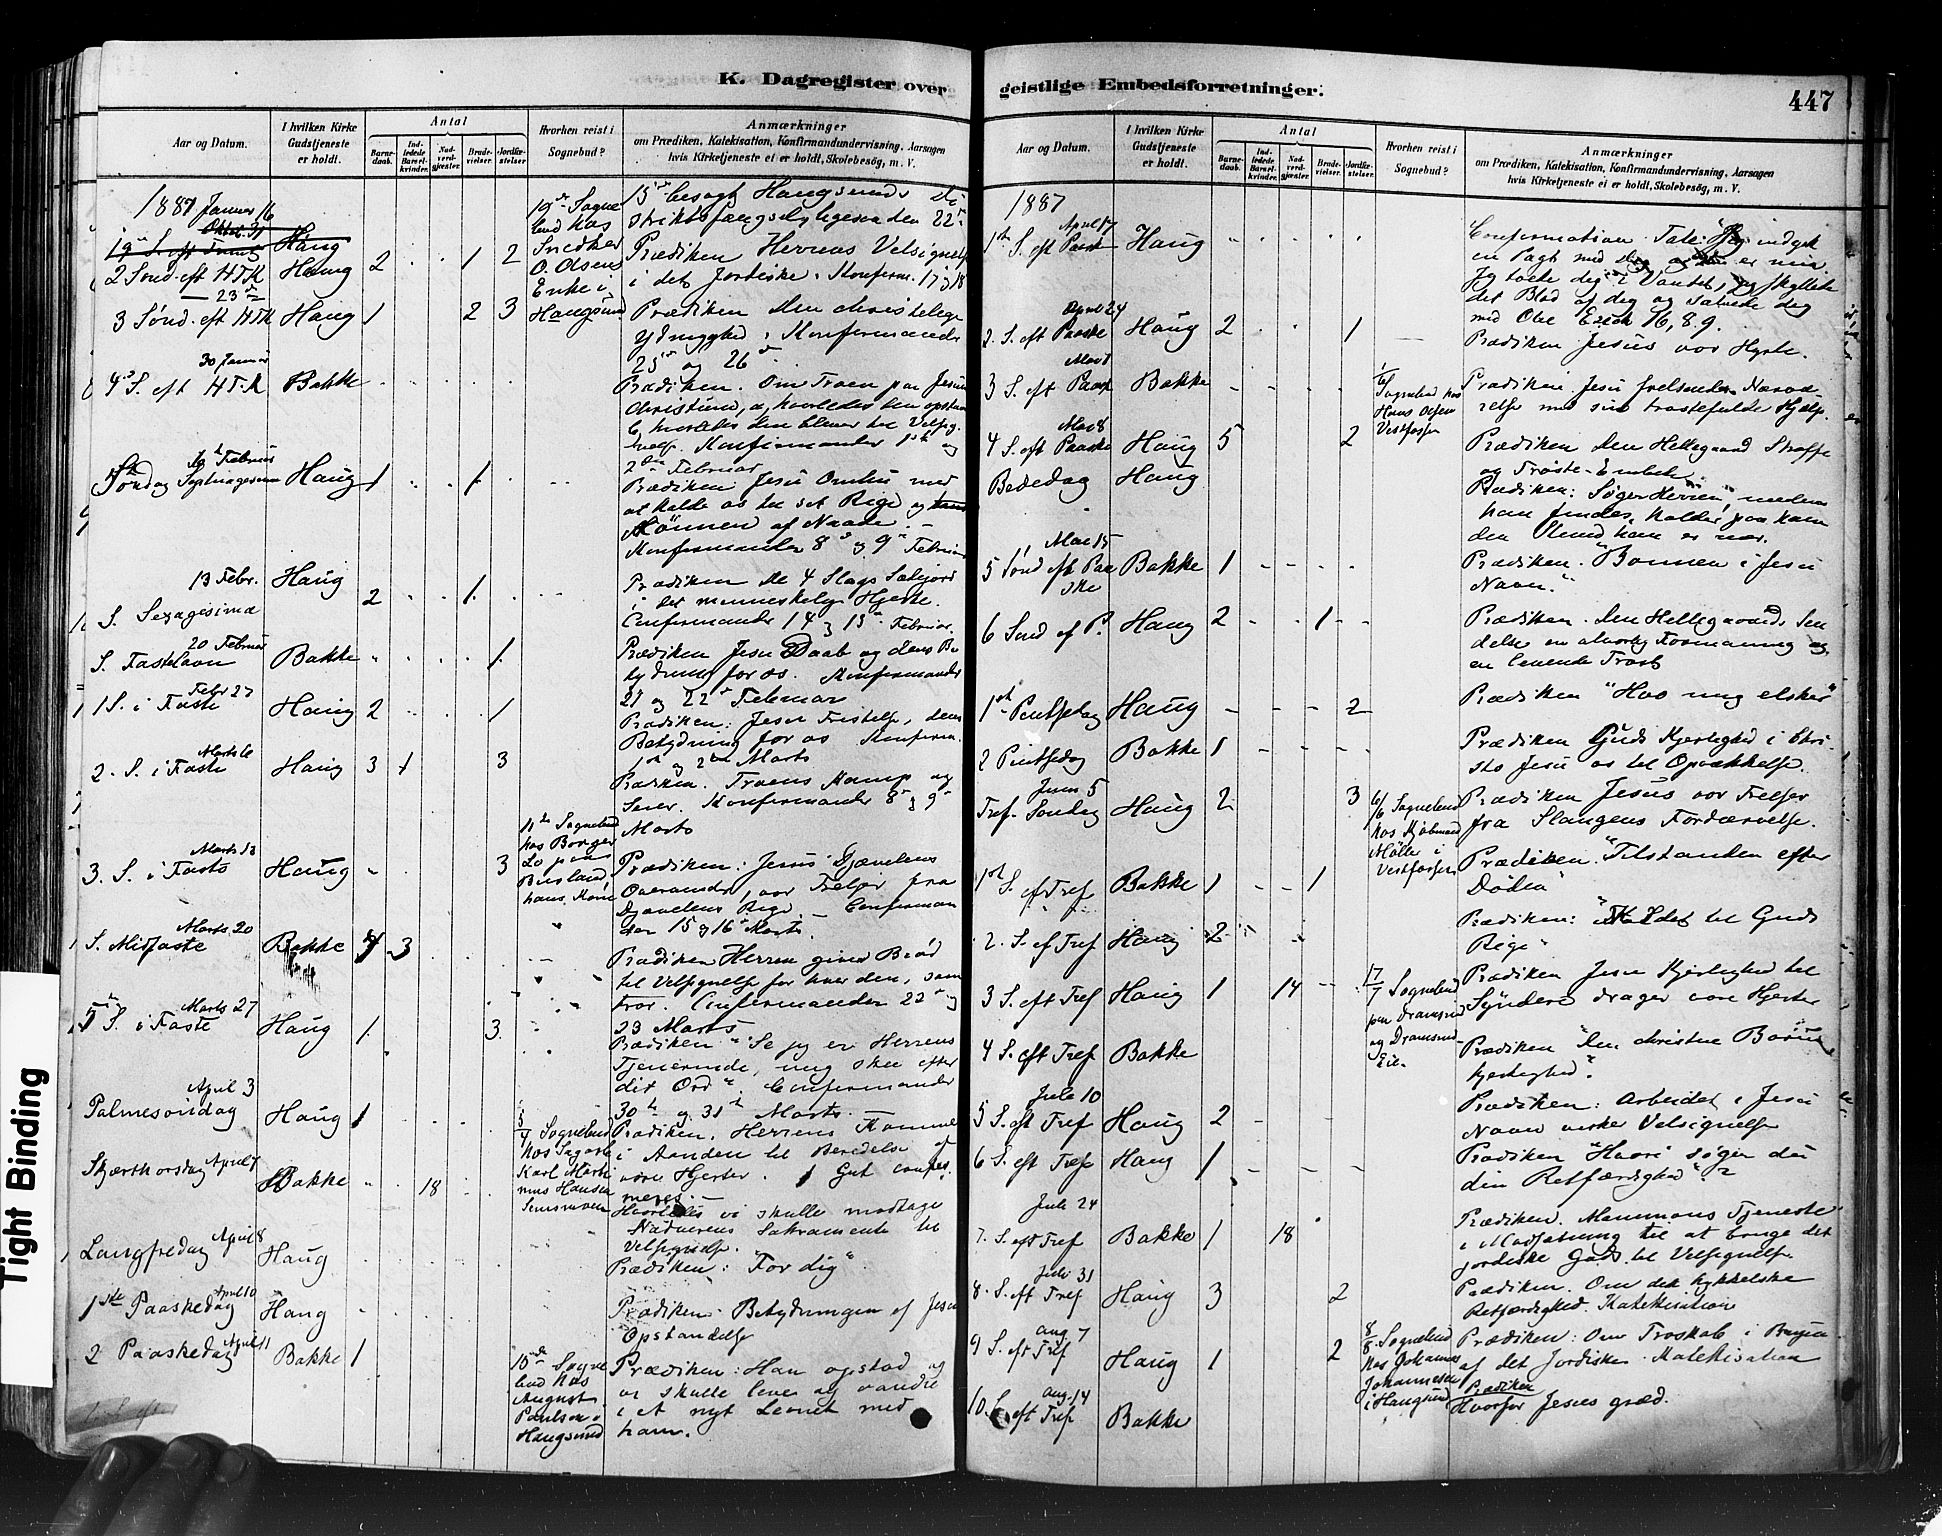 K. Dagregister over
Aar og Datum.
I hvilken Kirke Gudstjeneste er holdt.
Antal
Barnedaab.
Indledede Barselkvinder.
Nadverdgjæster.
Brudevielser.
Jordfæstelser.
Hvorhen reist i Sognebud?
Anmærkninger
om Prædiken, Katekisation, Konfirmandundervisning, Aarsagen
hvis Kirketjeneste ei er holdt, Skolebesøg, m. V.
1887 Januar 16
2 Sønd. eft HTK Haug 2 1 2
19de Sognebud hos Snedker O. Olsens Enke i Haugsund
15de besøgt Haugsunds Distriktsfængsel, ligesaa den 22de
Prædiken Herrens Velsignelse
i det Jordiske. Konfirm. 17 og 18
23de
3 Sønd. eft HTK Haug 1 2 3
Prædiken Den christelige
Ydmyghed. Konfirmander
25de og 26de
30 Januar
4de S. eft HTK Bakke
Prædiken. Om Troen paa Jesum
Christum, a, hvorledes den opstaar
b, hvorledes den bliver til Velsig
nelse. Konfirmander 1ste og
2den Februar
Februar
Søndag Septuagesima Haug 1 1
Prædiken Jesu Omhu med
at kalde os til sit Rige og
Lønnen af Naade.
Konfirmander 8de og 9de Februar
13 Febr.
S. Sexagesima Haug 2 1
Prædiken De 4 Slags Sædejord
i det menneskelige Hjerte.
Confirmander 14 og 15de Februar
20 Februar
S. Fastelavn Bakke 1
Prædiken Jesu Daab og dens Be
tydning for os. Konfirmander
21 og 22de Februar
Febr 27
1 S. i Faste Haug 2 1
Prædiken: Jesu Fristelse, dens
Betydning for os Konfirm.
1ste og 2den Marts
Marts 6
2. S. i Faste Haug 3 1 3
Prædiken. Troens Kamp og
Seier. Konfirmander 8de og 9de
Marts
Marts 13
3. S. i Faste Haug 3
Prædiken: Jesus Djævelens
Overmand, vor Frelser fra
Djævelens Rige. Confirman
der 15 og 16de Marts.
Marts 20
S. Midfaste Bakke 4 3
Prædiken Herren giver Brød
til Velsignelse for hver den, som
tror. Confirmander 22de og
23 Marts
Marts 27
5te S. i Faste Haug 1 3
Prædiken "Se jeg er Herrens
Tjenerinde, mig ske efter
dit Ord". Confirmander
30te og 31te Marts.
April 3
Palmesøndag Haug 1
5/4 Sognebud hos
Karl Marti
nius Hansen
Prædiken. Herrens Komme
i Aanden til Beredelse af
vore Hjerter.
Skjærthorsdag April 7 Bakke 18
Hvorledes vi skulle modtage
Nadverens Sakramente til
Velsignelse.
Langfredag April 8 Haug
Prædiken: "For dig"
1ste Paaskedag April 10 Haug
Prædiken. Betydningen af Jesu
Opstandelse
2 Paaskedag April 11 Bakke 1
10de Sogne
bud hos
August
Paulsen i
Haugsund
Prædiken: Han opstod og
vi skulle leve og vandre
i et nyt Levnet med
ham.
geistlige Embedsforretninger.
447
Aar og Datum.
I hvilken Kirke Gudstjeneste er holdt.
Antal
Barnedaab.
Indledede Barselkvinder.
Nadverdgjæster.
Brudevielser.
Jordfæstelser.
Hvorhen reist i Sognebud?
Anmærkninger
om Prædiken, Katekisation, Konfirmandundervisning, Aarsagen
hvis Kirketjeneste ei er holdt, Skolebesøg, m. V.
1887
April 17
1ste S. eft Paask Haug
Confirmation. Tale: "Jeg indgik
en Pagt med Dig og er min.
Jeg toede dig i Vandet, og skyllede
det Blod af dig og Salvede dig
med Olie Ezech 16, 8.9.
April 24
2. S. eft Paaske Haug 2 1
Prædiken Jesus vor Hyrde.
Mai 1
3 S. eft Paask Bakke
1/6 Sognebud hos
Hans Olsen
Vestfossen
Prædiken. Jesu Nærvæ
relse med sin trøstefulde Hjælp.
Mai 8
4 S. eft Paaske Haug 5 2
Prædiken Den Helligaand Straffe
og Trøste-Embede
Bededag Haug
Prædiken: Søger Herren, medens
han findes, kalder paa ham
den Stund han er nær.
Mai 15
5 Sønd eft Paa
ske Bakke 1
Prædiken. "Bønnen i Jesu
Navn."
6 Sønd ef P. Haug 2 1
Prædiken. Den Helligaands Sen
delse en alvorlig Formaning og
en levende Trøst
1ste Pintsedag Haug 2
Prædiken "Hvo mig elsker"
2 Pintsedag Bakke 1
Prædiken Guds Kjerlighed i Chri
sto Jesu os til Opvækkelse.
Juni 5
Tref. Søndag Haug 2 3
6/6 Sognebud
hos Kjøbmand
Møller i
Vestfossen
Prædiken Jesus vor Frelser
fra Slangens Fordærvelse.
1ste S. eft Tref Bakke 1 1
Prædiken. "Tilstanden efter
Døden"
2. S. ef Tref Haug 2
Prædiken: "Kaldet til Guds
Rige"
3 S. eft Tref Haug 1 14
17/7 Sognebud
paa Dramsrud
og Dramsrud
Eie.
Prædiken Jesu Kjerlighed til
Syndere drager vore Hjerter
4 S. eft Tref Bakke
Prædiken "Den christne
kjerlighed".
Juli 10
5 S. eft Tref Haug 2
Prædiken: Arbeidet i Jesu
Navn virker Velsignelse
6 S. eft Tref Haug 1
Prædiken "Hvori søger du
din Retfærdighed"?
Juli 24
7. S. eft Tref Bakke 1 18
Prædiken. Mammons Tjeneste
i Modsætning til at bruge det
jordiske Gods til Velsignelse
Juli 31
8. S. eft Tref Haug 3 2
Prædiken. Om den hykkelske
Retfærdighed. Katekisation
Aug 7
9 S. eft Tref Haug 1 2
8/8 Sognebud
hos Johannes
Johannesen
i Haugsund
Prædiken: Om Troskab i Brugen
af det Jordiske. Katekisation
Aug. 14
10. S. eft Tref Bakke
Prædiken
Hvorfor Jesus græd.
Tight Binding